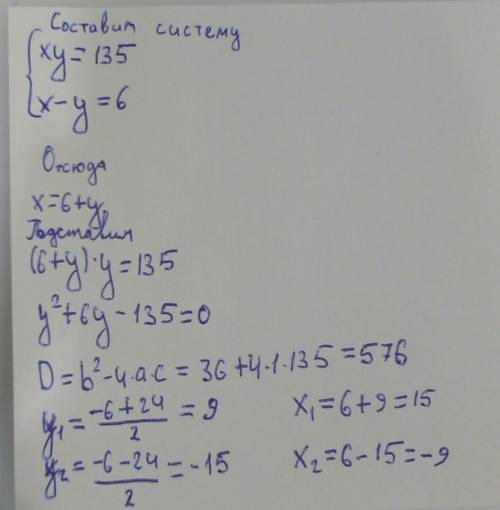 Составим систему
xy = 135
x - y = 6
Отсюда
x = 6 + y
Подставим
(6 + y) · y = 135
y² + 6y - 135 = 0
D = b² - 4·a·c = 36 + 4·1·135 = 576
y₁ = (-6 + 24)/2 = 9 x₁ = 6 + 9 = 15
y₂ = (-6 - 24)/2 = -15 x₂ = 6 - 15 = -9